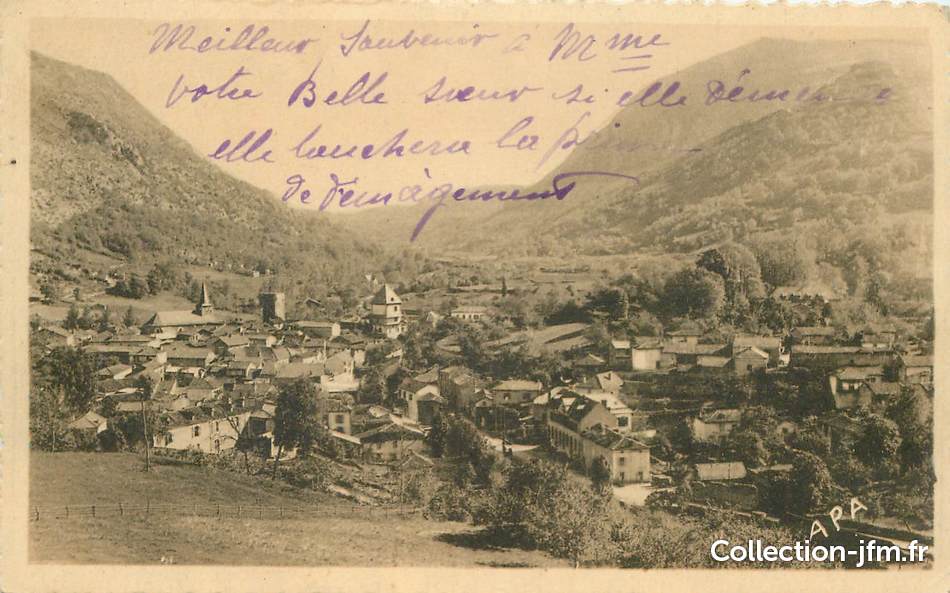 Meilleur Souvenir à Mme
votre Belle sœur si elle Démenage
elle touchera la prime
de Demàgement
APA
Collection-jfm.fr